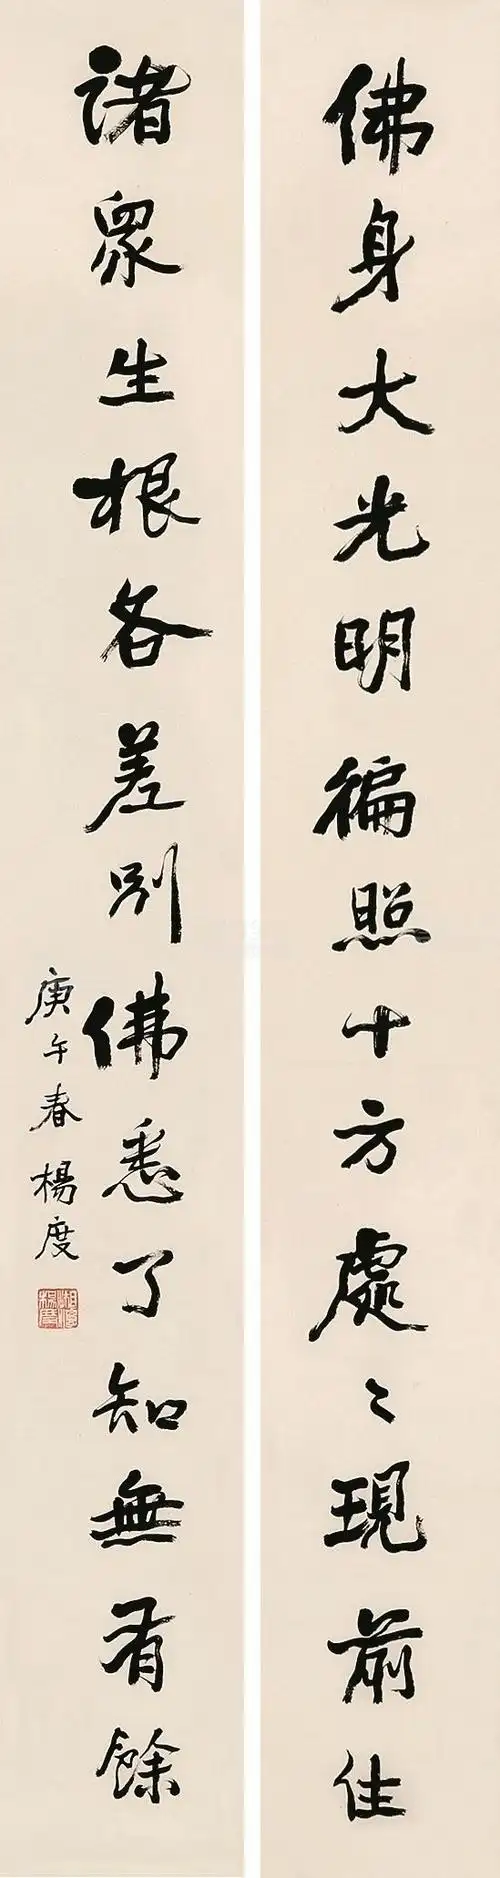 佛身大光明徧照十方處〻現前住
諸眾生根各差別佛悉了知無有餘
庚午春 楊度